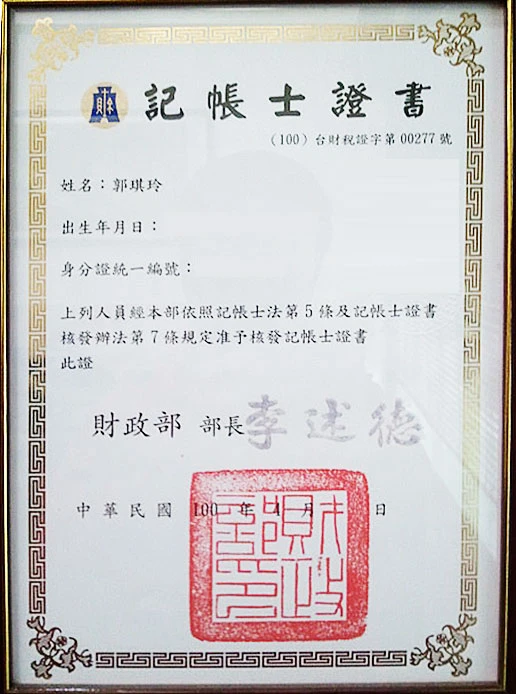 財
記帳士證書
(100) 台財稅證字第 00277 號
姓名：郭琪玲
出生年月日：
身分證統一編號：
上列人員經本部依照記帳士法第 5 條及記帳士證書
核發辦法第 7 條規定准予核發記帳士證書
此證
財政部 部長 李述德
中華民國 100 年 4 月 日
財政部印